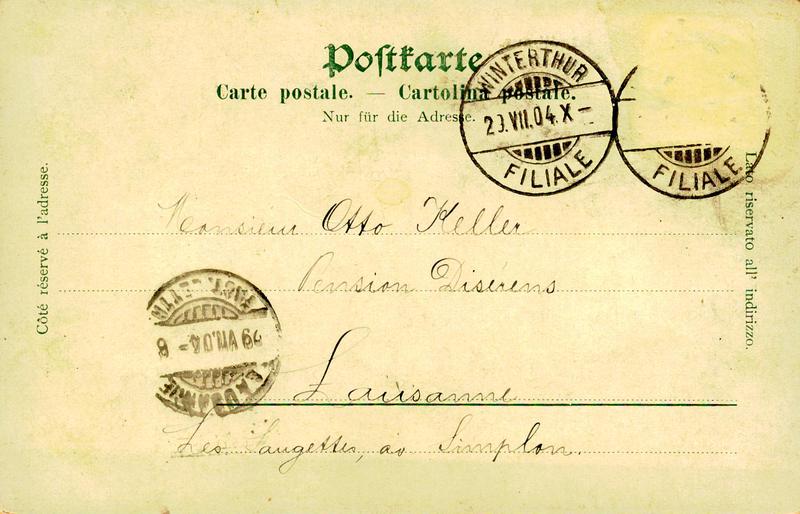 Postkarte
Carte postale. — Cartolina postale.
Nur für die Adresse.
WINTERTHUR
29.VII.04.X–
FILIALE
FILIALE
Côté réservé à l'adresse.
Lato riservato all' indirizzo.
Monsieur Otto Keller
Pension Disérens
Lausanne
av Simplon.
29 VII.04 - 8
LAUSANNE